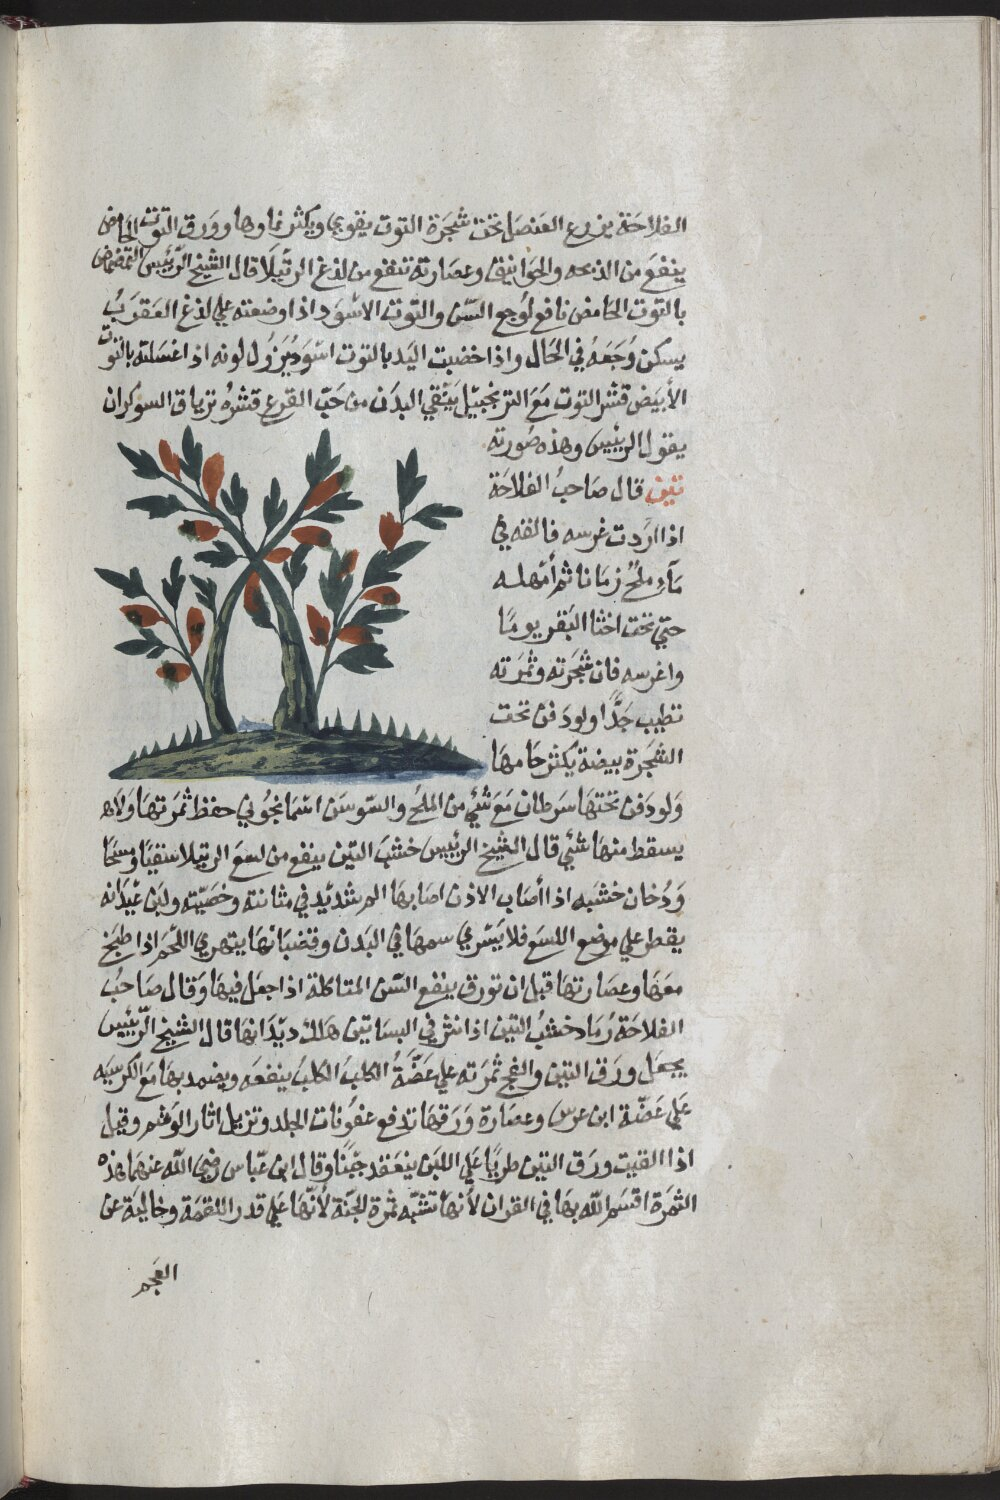 الفلاحة يزرع العنصل تحت شجرة التوت يقوي ويكثر نماوها وورق التوت الحامض
ينفع من الذبحه والخوانيق وعصارته تنفع من لذغ الرتيلا قال الشيخ الرئيس التمضمض
بالتوت الحامض نافع لوجع السن والتوت الاسود اذا وضعته علي لذغ العقرب
يسكن وجعه في الحال واذا خضبت اليد بالتوت اسود يزول لونه اذا غسلته بالتوت
الأبيض قشر التوت مع الترنجبيل ينقي البدن من حب القرع قشره ترياق السوكران
يقول الرئيس وهذه صورته
تين قال صاحب الفلاحة
اذا اردت غرسه فالقه في
مآء ملح زمانا ثم أمهله
حتي تحت اخثا البقر يوما
واغرسه فان شجرته وثمرته
تطيب جدا ولو دفن تحت
الشجرة بيضة يكثر حامها
ولو دفن تحتها سرطان مع شئ من الملح والسوسن اسمانجوني حفظ ثمرتها ولا
يسقط منها شئ قال الشيخ الرئيس خشب التين ينفع من لسع الرتيلا سقيا ومسحا
ودخان خشبه اذا أصاب الاذن اصابها الم شديد في مثانته وخصيته ولبن عيدانه
يقطر علي موضع اللسع فلا يسري سمها في البدن وقضبانها يتهري اللحم اذا طبخ
معها وعصارتها قبل ان تورق ينفع السن المتاكلة اذا جعل فيها وقال صاحب
الفلاحة رماد خشب التين اذا نثر في البساتين هلك ديدانها قال الشيخ الرئيس
يجعل ورق التين والفج ثمرته علي عضة الكلب الكلب ينفعه ويضمد بها مع الكرسنه
علي عضة ابن عرس وعصارة ورقها تدفع عفونات الجلد وتزيل اثار الوشم وقيل
اذا القيت ورق التين طريا علي اللبن ينعقد جبنا وقال ابن عباس رضي الله عنهما هذه
الثمرة اقسم الله بها في القران لأنها تشبه ثمرة الجنة لأنها علي قدر اللقمة وخالية عن
العجم